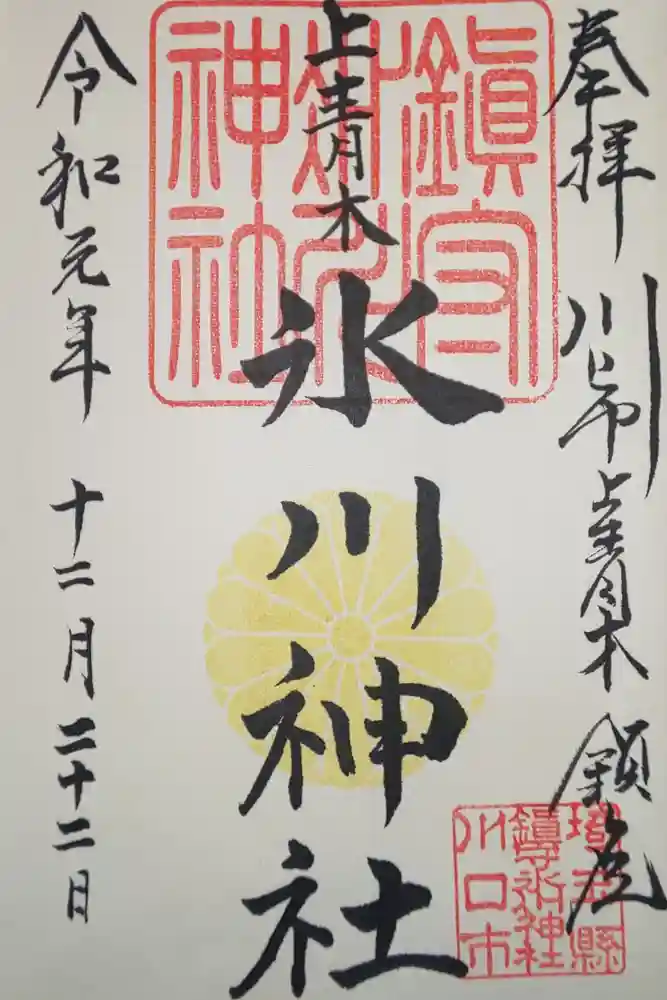 奉拝
川口市上青木鎮座
上青木
氷川神社
鎮守
氷川
神社
埼玉縣
鎮守氷川神社
川口市
令和元年
十二月二十二日